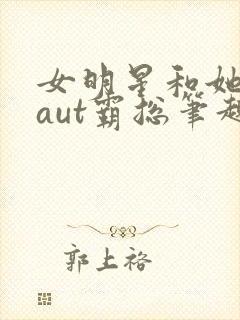 女明星和她
aut霸总笔趣
郭上裕